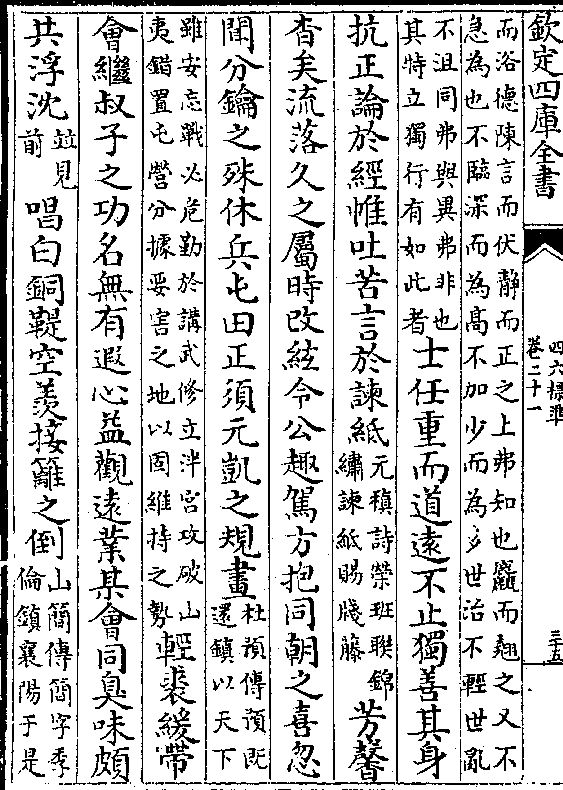 欽定四庫全書
四六標準
卷二十一
三十五
而浴德陳言而伏靜而正之上弗知也麤而翹之又不
急為也不臨深而為髙不加少而為多世治不輕世亂
不沮同弗與異弗非也
其特立獨行有如此者士任重而道逺不止獨善其身
抗正論於經帷吐苦言於諫紙元稹詩榮班聯錦
繡諫紙賜牋藤芳馨
杳矣流落久之屬時改絃令公趣駕方抱同朝之喜忽
閫分鑰之殊休兵屯田正須元凱之規畫杜預傳預既
還鎮以天下
雖安忘戰必危勤於講武修立泮宫攻破山
夷錯置屯營分據要害之地以固維持之勢輕裘緩帶
㑹繼叔子之功名無有遐心益觀逺業某㑹同臭味頗
共浮沈並見
前唱白銅鞮空羡接籬之倒山簡傳簡字季
倫鎮襄陽于是